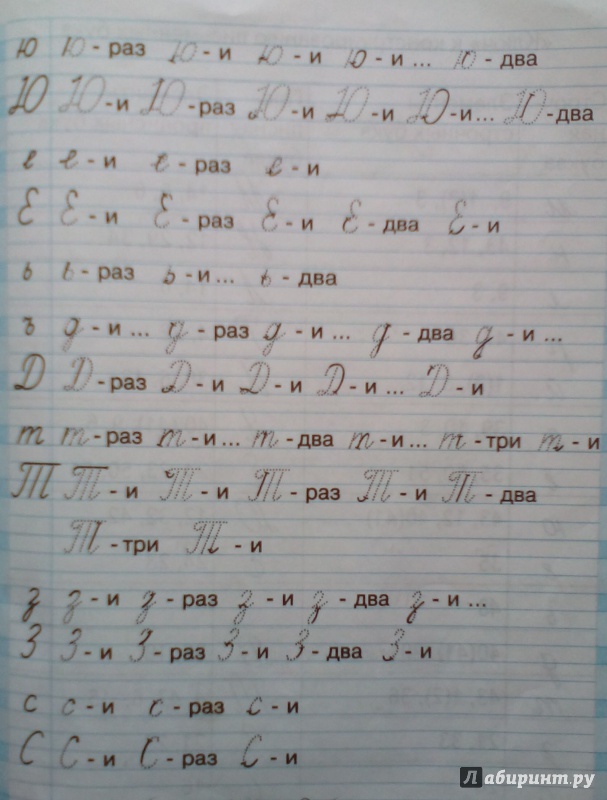 ю ю - раз ю - и ю - и ю - и ... ю - два
Ю Ю - и Ю - раз Ю - и Ю - и Ю - и ... Ю - два
е е - и е - раз е - и
Е Е - и Е - раз Е - и Е - два Е - и
ь ь - раз ь - и ... ь - два
ъ д - и ... д - раз д - и ... д - два д - и ...
Д Д - раз Д - и Д - и Д - и ... Д - и
т т - раз т - и ... т - два т - и ... т - три т - и
Т Т - и Т - и Т - раз Т - и Т - два
Т - три Т - и
з з - и з - раз з - и з - два з - и ...
З З - и З - раз З - и З - два З - и
с с - и с - раз с - и
С С - и С - раз С - и
Лабиринт.ру